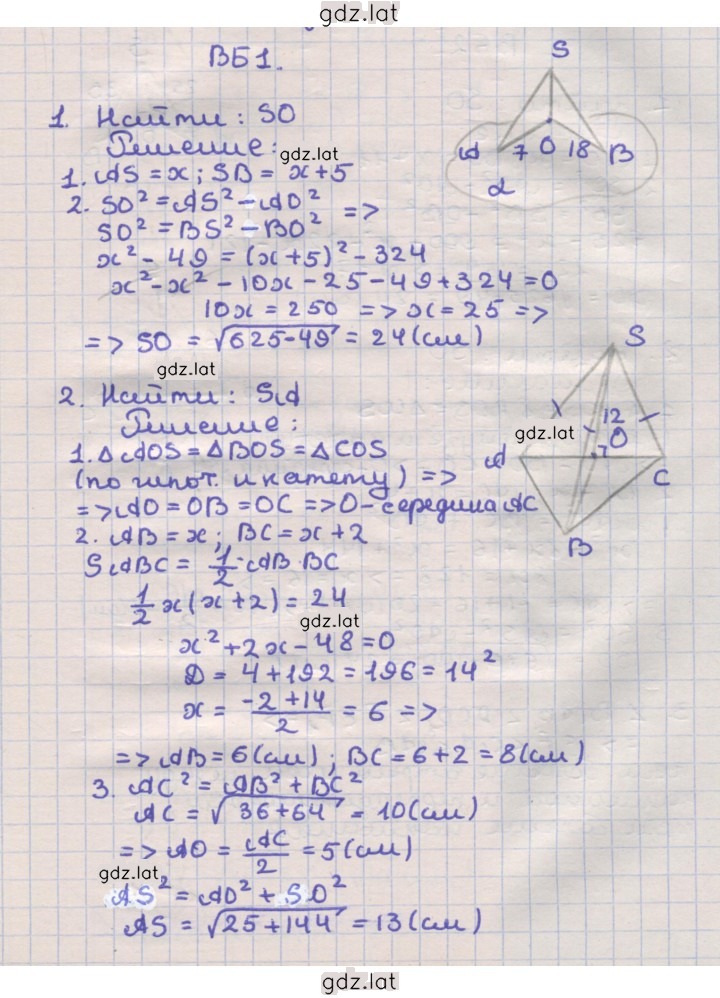 gdz.lat
ВБ1.
S
1. Найти: SO
Решение:
gdz.lat
A 7 O 18 B
α
1. AS = x; SB = x+5
2. SO² = AS² - AO²
SO² = BS² - BO² =>
x² - 49 = (x+5)² - 324
x² - x² - 10x - 25 - 49 + 324 = 0
10x = 250 => x = 25 =>
=> SO = √625-49 = 24(см)
gdz.lat
S
2. Найти: SA
Решение:
12
gdz.lat
O
A
C
B
1. △AOS = △BOS = △COS
(по гипот. и катету) =>
=> AO = OB = OC => O - середина AC
2. AB = x; BC = x+2
SABC = 1/2 · AB · BC
1/2 x(x+2) = 24
gdz.lat
x² + 2x - 48 = 0
D = 4 + 192 = 196 = 14²
x = -2+14/2 = 6 =>
=> AB = 6(см); BC = 6+2 = 8(см)
3. AC² = AB² + BC²
AC = √36+64 = 10(см)
=> AO = AC/2 = 5(см)
gdz.lat
AS² = AO² + SO²
AS = √25+144 = 13(см)
gdz.lat